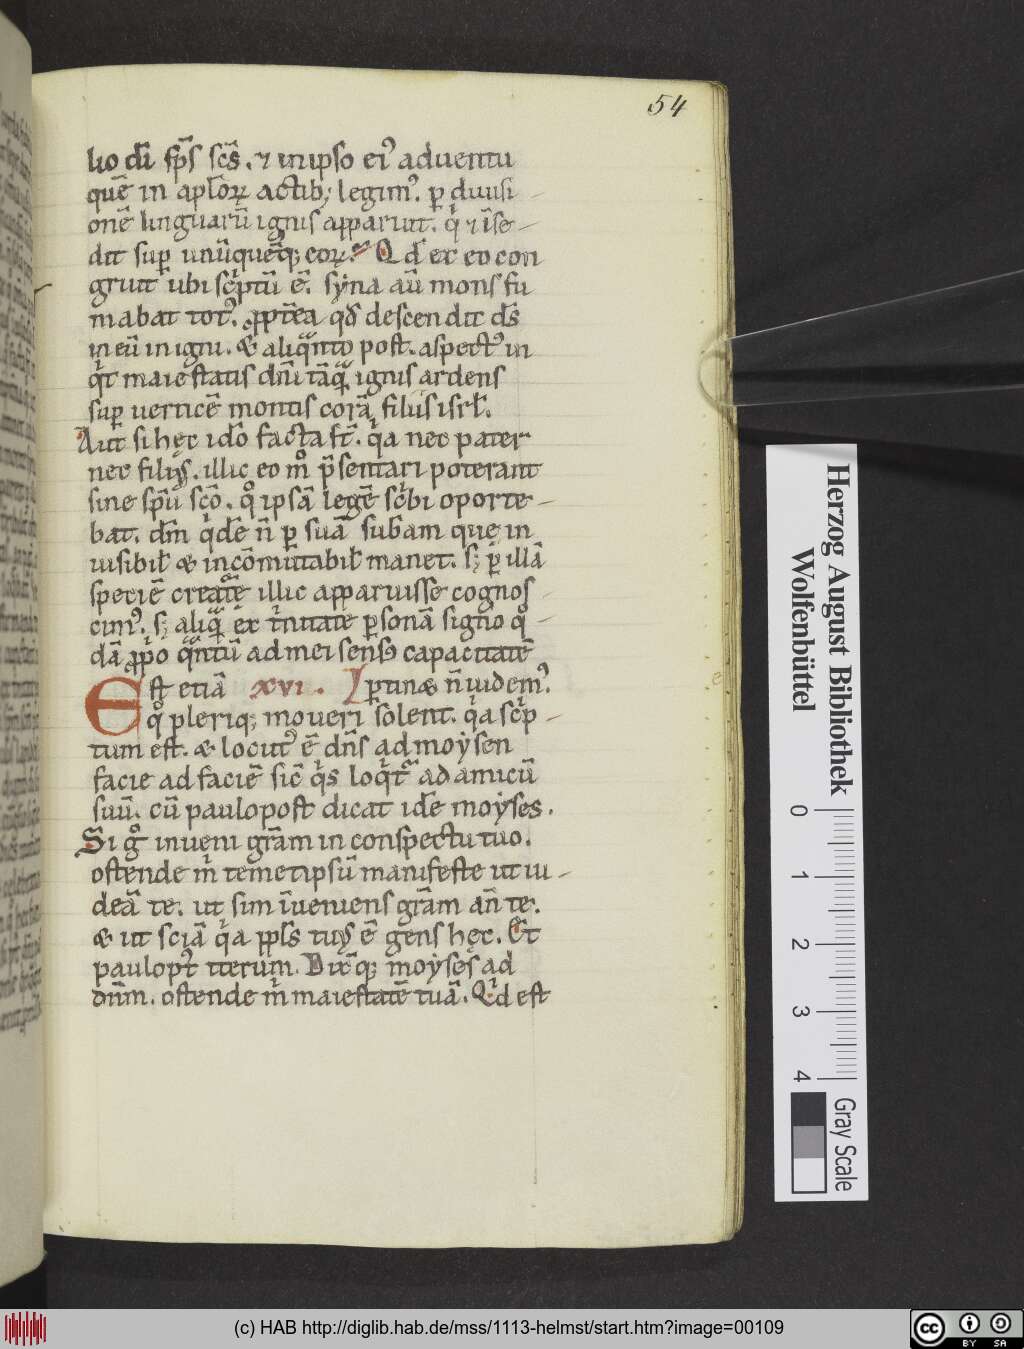 54
lio dī sp̄s sc̄s. ⁊ in ipso ei᷒ aduentu
quē in apl̄oꝝ actib; legim᷒. ꝑ diuisi
onē linguarū ignis apparuit. q̇ ⁊ īse
dit suꝑ unūquēq; eoꝝ. Qd̄ ex eo con
gruit ubi sc̄ptū ē. sẏna aū mons fu
mabat tot᷒. ꝓpt̄ea qđ descendit ds̄
in eū in igni. & aliqͣnto post. aspect᷒ in
qͥt maiestatis dn̄i tāqͣ ignis ardens
suꝑ uerticē montis corā filiis isrl̄.
Aut si hęc ido̅ facta st̄. qͥa nec pater
nec filiꝰ. illic eo m̊ p̄sentari poterant
sine sp̄u sc̄o. qͦ ipsā legē sc̄bi oporte
bat. dm̄ qͥdē n̄ ꝑ suā subam que in
uisibil̄ & incōmutabil̄ manet. s; ꝑ illā
speciē creatᵉ̄ illic apparuisse cognos
cim᷒. s; aliqͣ ex tͥnitate ꝑsonā signo qͦ
dā ꝓpo qͣntū ad mei sens᷒ capacitatē
Est etiā xvi. Ipertinax n̄ uidem᷒.
qͦ pleriq; moueri solent. qͥa sc̄p
tum est. & locut᷒ ē dn̄s ad moẏsen
facie ad faciē sic̄ qͥs loqͥt᷑ ad amicū
suū. cū paulopost dicat idē moẏses.
Si gͦ inueni gr̄am in conspectu tuo.
ostende m̄ temetipsū manifeste ut ui
deā te. ut sim īueniens gr̄am an̄ te.
& ut sciā qͥa ppl̄s tuꝰ ē gens hęc. Et
paulopꝰt iterum. Dixq; moẏses ad
dn̄m. ostende m̄ maiestatē tuā. Qͥd est
Herzog August Bibliothek
Wolfenbüttel
0 1 2 3 4
Gray Scale
(c) HAB http://diglib.hab.de/mss/1113-helmst/start.htm?image=00109
cc BY SA